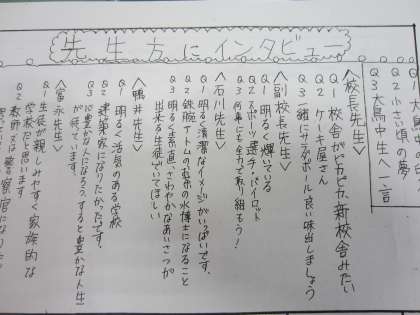 先生方にインタビュー
Q2 小さい頃の夢
Q3 大鳥中生へ一言
〈校長先生〉
Q1 校舎がピカピカ新校舎みたい
Q2 ケーキ屋さん
Q3 一緒にサラダボール良い味出しましょう
〈副校長先生〉
Q1 明るく輝いている
Q2 スポーツ選手・パイロット
Q3 何事にも全力で取り組もう！
〈石川先生〉
Q1 明るく清潔なイメージがいっぱいです。
Q2 鉄腕アトムのお茶の水博士になること
Q3 明るく素直でさわやかなあいさつが
出来る生徒でいてほしい
〈鴨井先生〉
Q1 明るく活気のある学校
Q2 建築家になりたかったです。
Q3 心豊かな人になろうとすると豊かな人生
が待っています。
〈富永先生〉
Q1 生徒が親しみやすく家族的な
学校だと思います